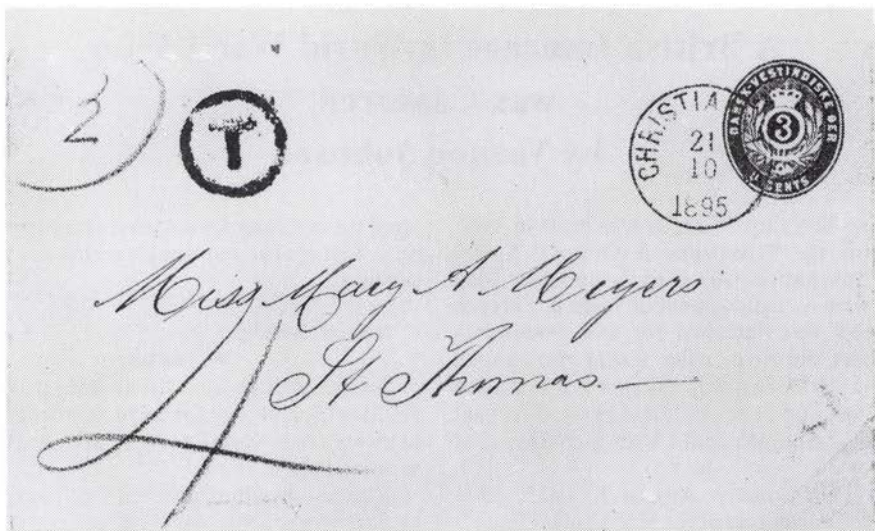 2
T
CHRISTIA
21
10
1895
DANSK-VESTINDISKE ØER
3
CENTS
Miss Mary A Meyers
St Thomas. —
4